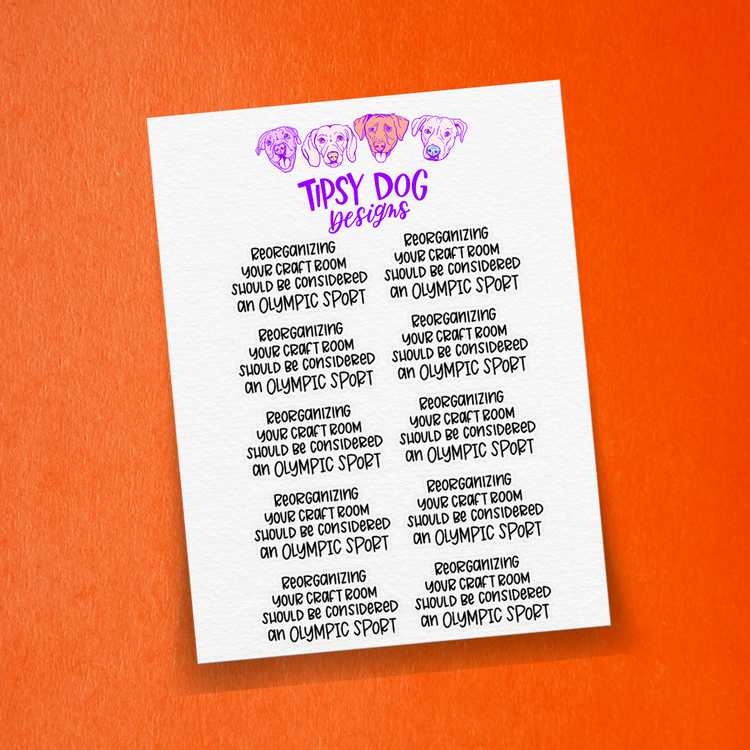 TIPSY DOG
Designs
Reorganizing
your craft room
should be considered
an Olympic Sport
Reorganizing
your craft room
should be considered
an Olympic Sport
Reorganizing
your craft room
should be considered
an Olympic Sport
Reorganizing
your craft room
should be considered
an Olympic Sport
Reorganizing
your craft room
should be considered
an Olympic Sport
Reorganizing
your craft room
should be considered
an Olympic Sport
Reorganizing
your craft room
should be considered
an Olympic Sport
Reorganizing
your craft room
should be considered
an Olympic Sport
Reorganizing
your craft room
should be considered
an Olympic Sport
Reorganizing
your craft room
should be considered
an Olympic Sport